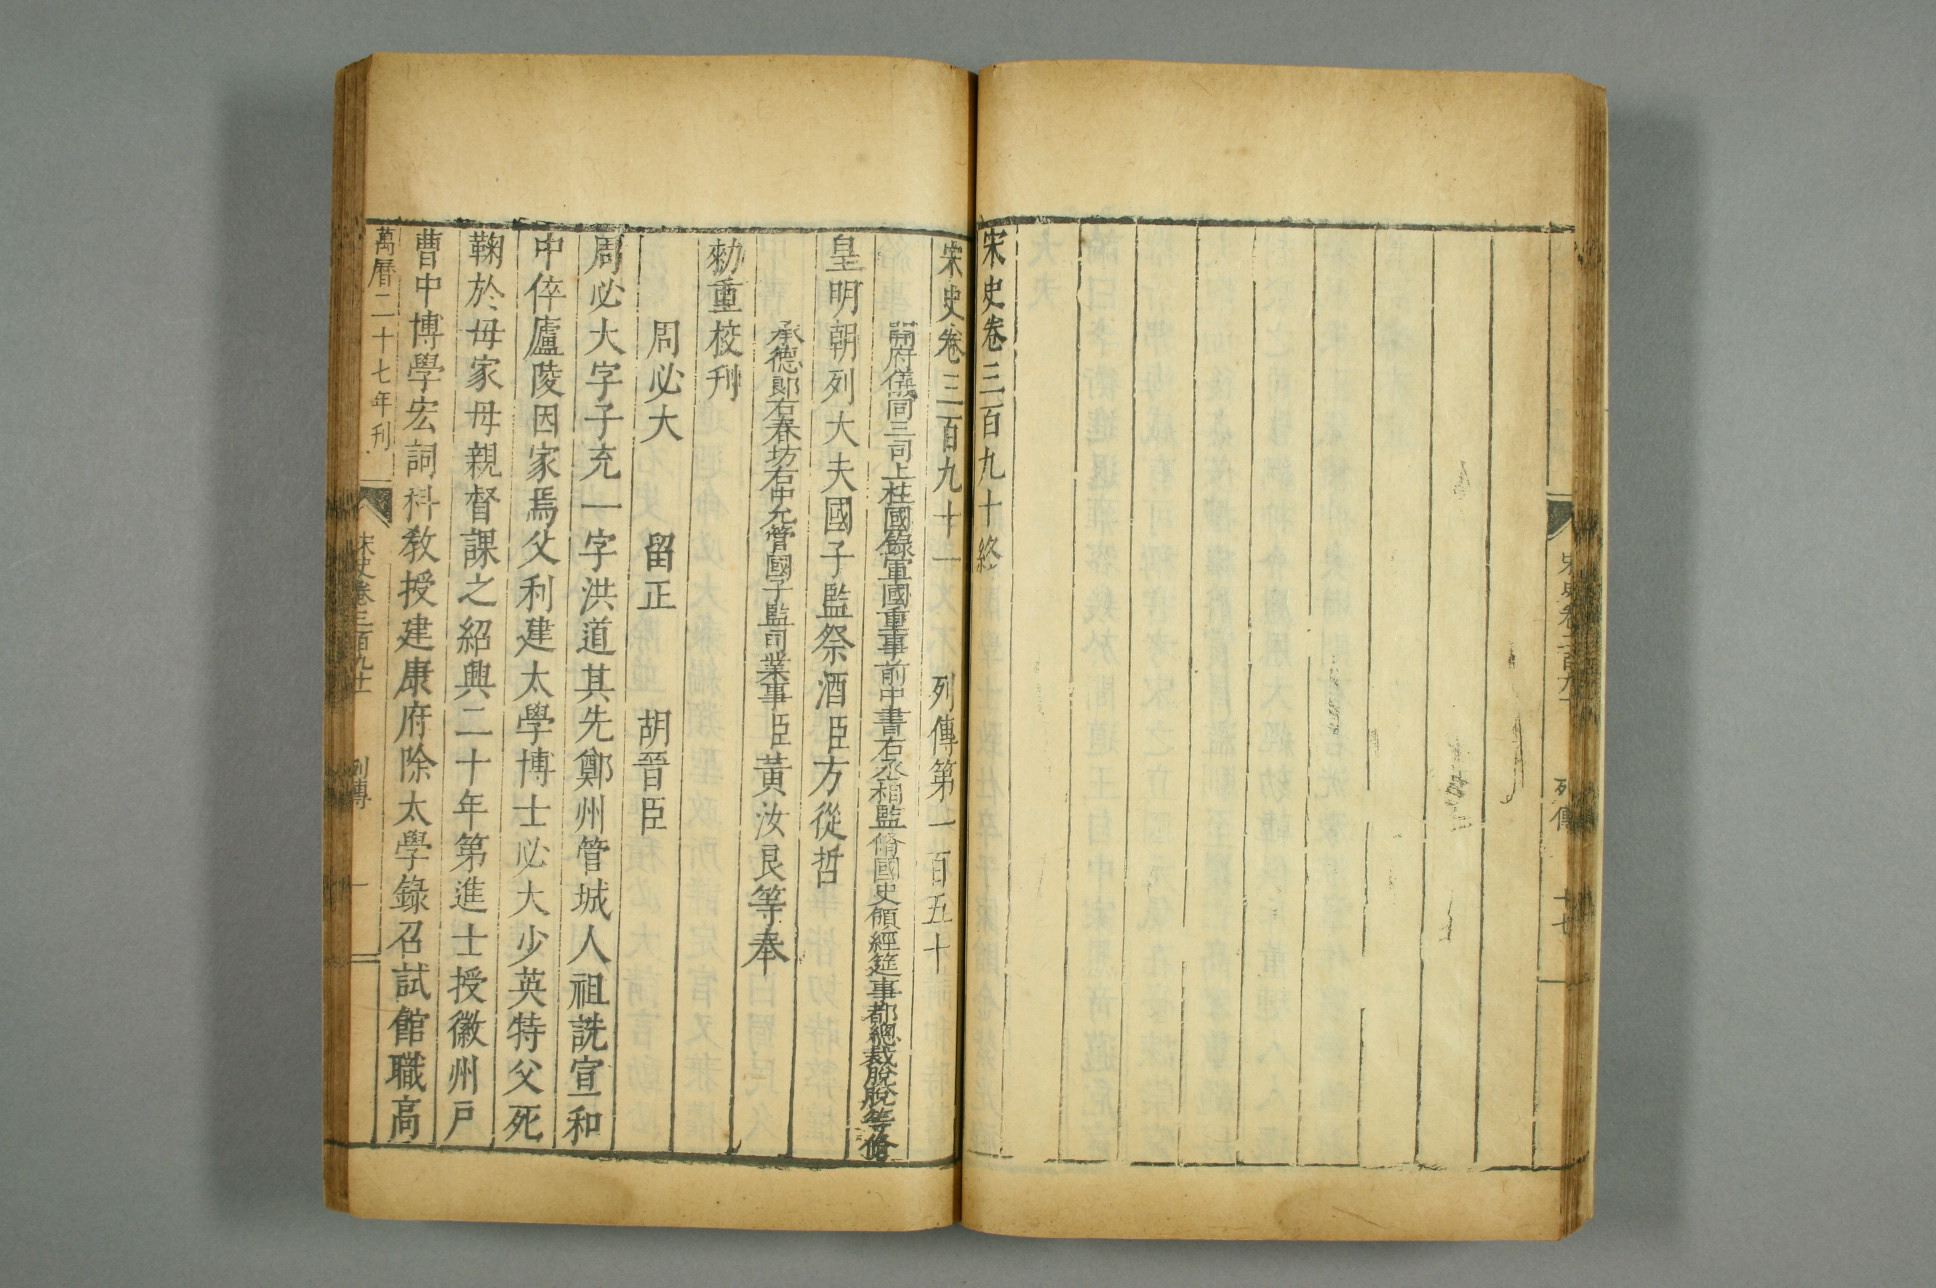 宋史卷三百九十
列傳
十七
宋史卷三百九十終
宋史卷三百九十一　列傳第一百五十
開府儀同三司上柱國錄軍國重事前中書右丞相監脩國史領經筵事都總裁脫脫等修
皇明朝列大夫國子監祭酒臣方從哲
承德郎右春坊右中允管國子監司業事臣黃汝良等奉
勑重校刊
周必大　留正　胡晉臣
周必大字子充一字洪道其先鄭州管城人祖詵宣和
中倅廬陵因家焉父利建太學博士必大少英特父死
鞠於母家母親督課之紹興二十年第進士授徽州戶
曹中博學宏詞科教授建康府除太學錄召試館職高
萬曆二十七年刊
宋史卷三百九十一
列傳
一